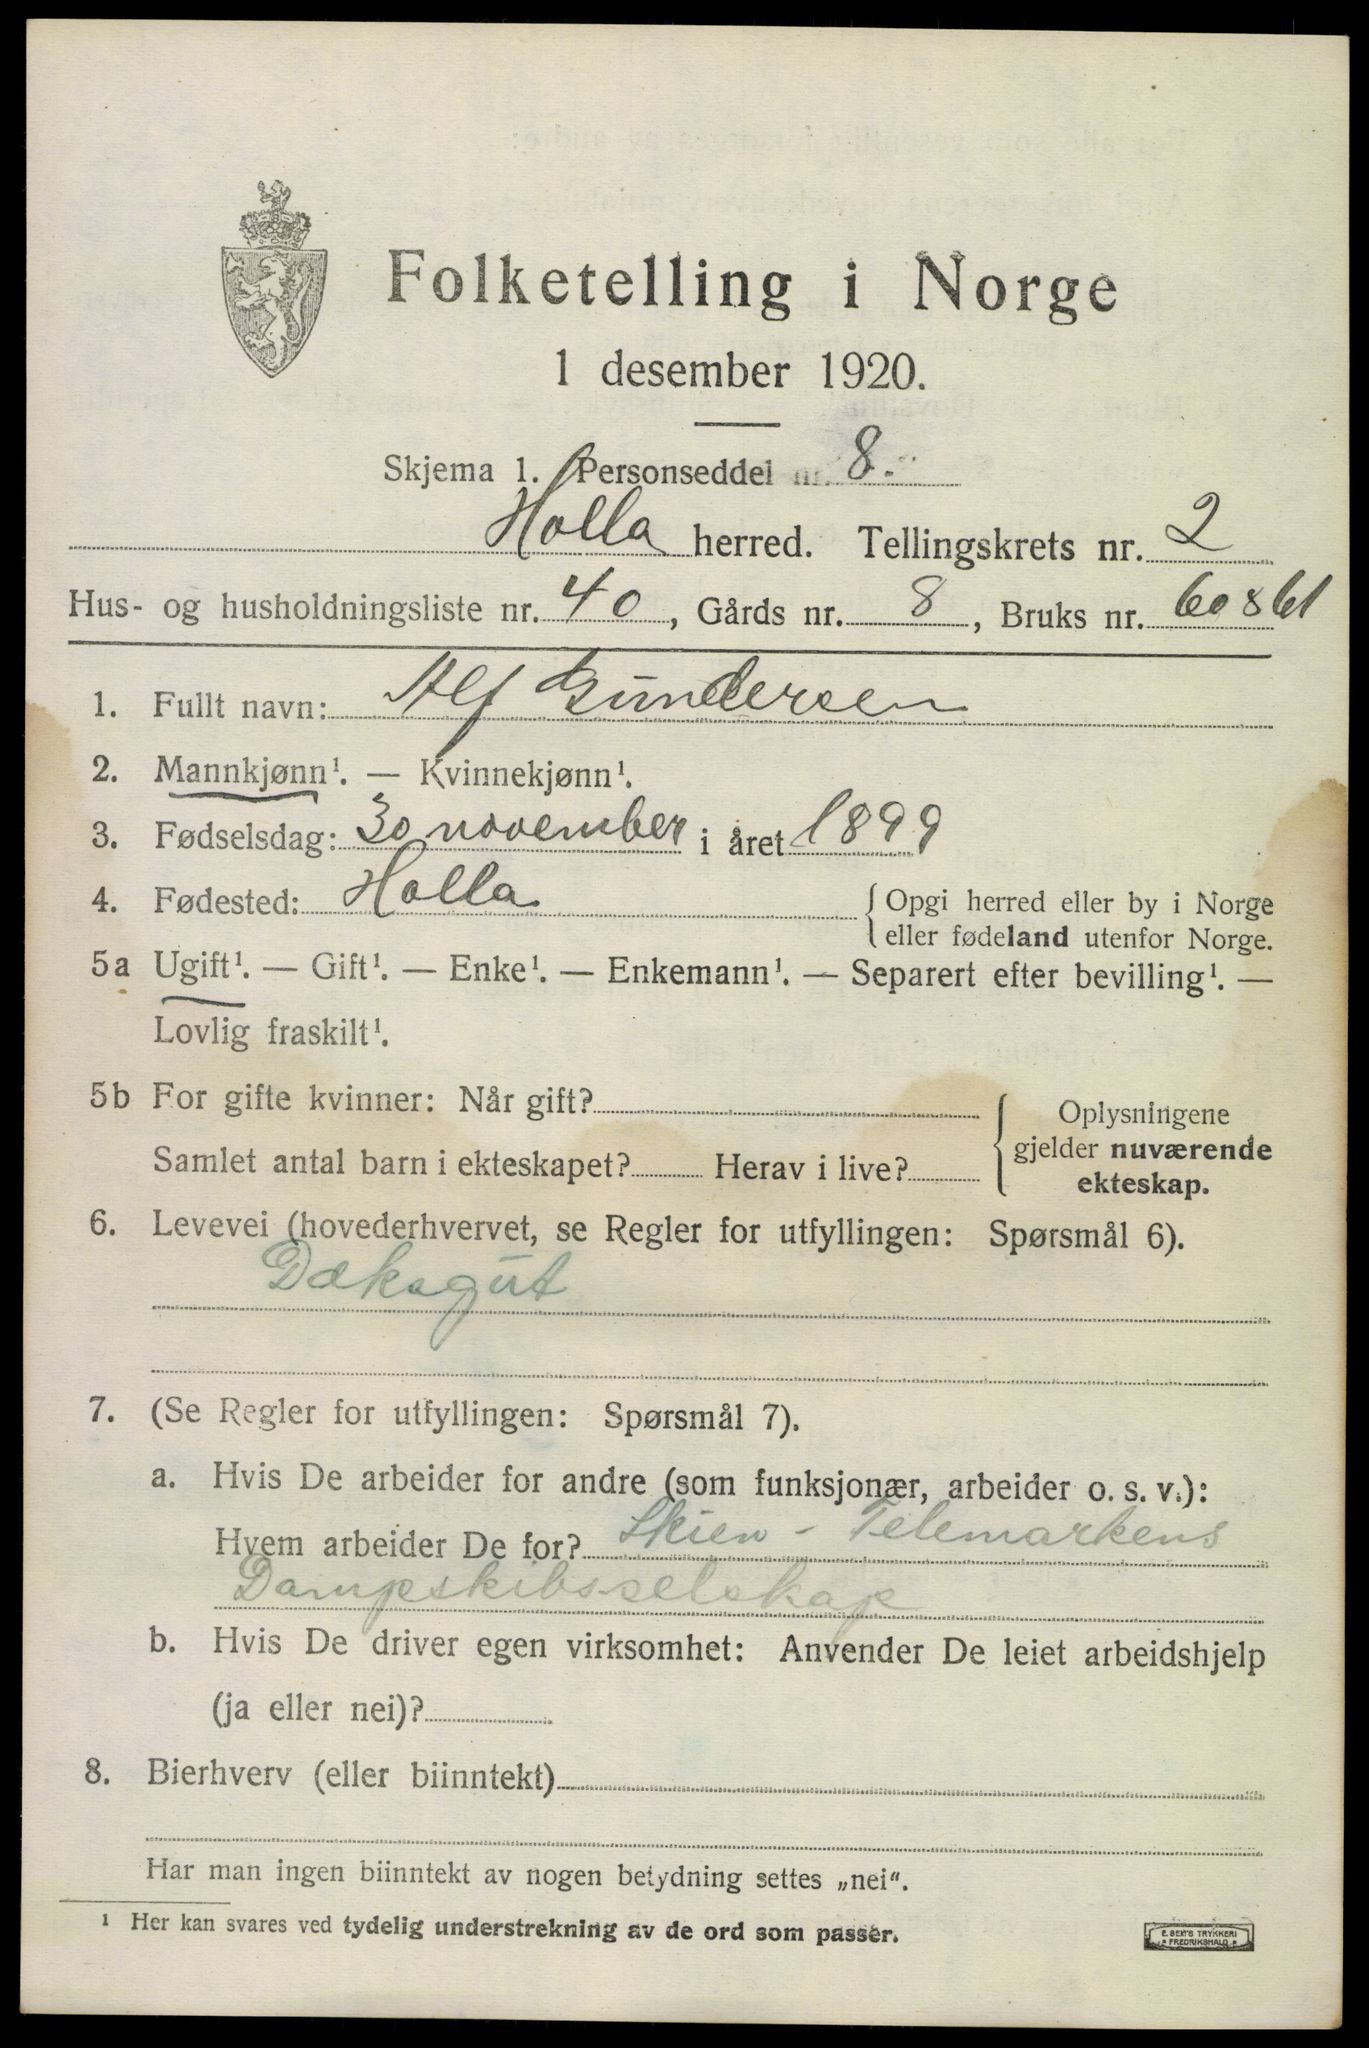 Folketelling i Norge
1 desember 1920.
Skjema 1. Personseddel nr. 8.
Holla herred. Tellingskrets nr. 2
Hus- og husholdningsliste nr. 40, Gårds nr. 8, Bruks nr. 60 & 61
1. Fullt navn: Alf Gundersen
2. Mannkjønn¹. — Kvinnekjønn¹.
3. Fødselsdag: 30 november i året 1899
4. Fødested: Holla { Opgi herred eller by i Norge
eller fødeland utenfor Norge.
5a Ugift¹. — Gift¹. — Enke¹. — Enkemann¹. — Separert efter bevilling¹. —
Lovlig fraskilt¹.
5b For gifte kvinner: Når gift? Oplysningene
gjelder nuværende
Samlet antal barn i ekteskapet? Herav i live? ekteskap.
6. Levevei (hovederhvervet, se Regler for utfyllingen: Spørsmål 6).
Dæksgut
7. (Se Regler for utfyllingen: Spørsmål 7).
a. Hvis De arbeider for andre (som funksjonær, arbeider o. s. v.):
Hvem arbeider De for? Skien - Telemarkens
Dampskibsselskap
b. Hvis De driver egen virksomhet: Anvender De leiet arbeidshjelp
(ja eller nei)?
8. Bierhverv (eller biinntekt)
Har man ingen biinntekt av nogen betydning settes „nei“.
¹ Her kan svares ved tydelig understrekning av de ord som passer.
E. SEM'S TRYKKERI
FREDRIKSHALD